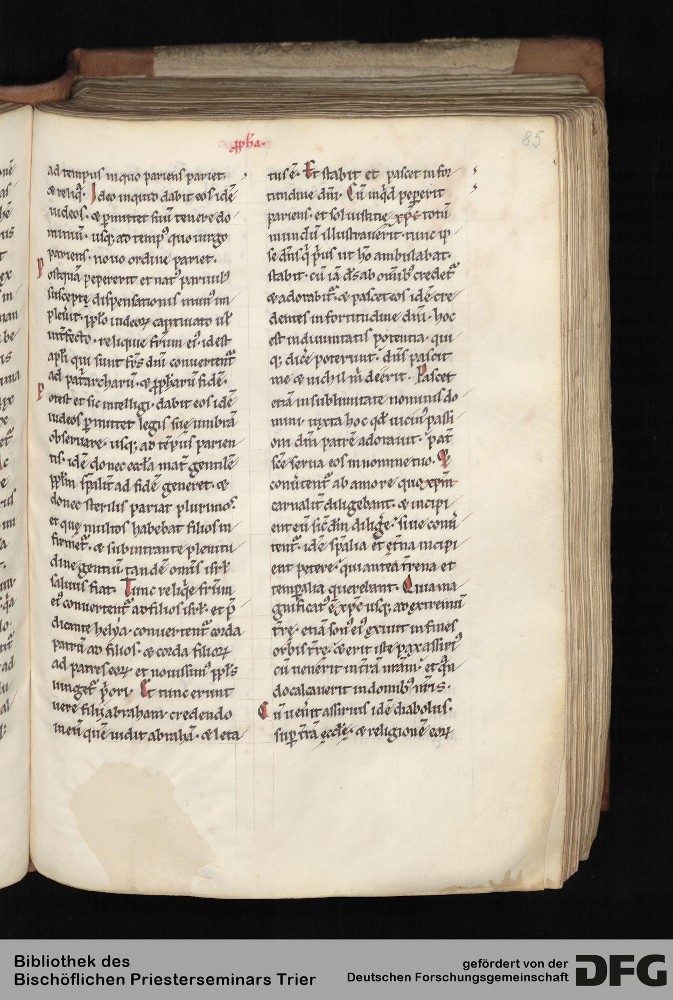 ꝓph̄a.
85
ad tempus in quo pariens pariet.
⁊ reliq̄. Ideo inquid dabit eos idē
iudeos. ⁊ ꝑmittet suū tenere do
miniū. usq; ad temp᷒ quo uirgo
pariens nouo ordine pariet.
Postquam pepererit et nat᷒ paruul᷒
susceptę dispensationis mun᷒ im
pleuit. pp̄lo iudeoꝝ captiuato ul̓
int̓fecto. reliquie fr̄um ei᷒ id est
apl̓i qui sunt fr̄s dn̄i conuertent̓
ad pat̓archarū. ⁊ ꝓph̓arū fidē.
Potest et sic intelligi. dabit eos idē
iudeos ꝑmittet legis sue umbrā
obseruare. usq; ad temp᷒ parien
tis. idē donec eccl̓a mat̓ gentilē
pp̄lm sp̄ualit̓ ad fidē generet. ⁊
donec sterilis pariat plurimos.
et quę multos habebat filios in
firmet̓. ⁊ subintrante plenitu
dine gentiū tandē om̄is isr̄l
saluus fiat. Tunc reliq̓e fr̄um
ei᷒ conuertent̓ ad filios isr̄l. et p̄
dicante helya. conuertent̓ corda
patrū ad filios. ⁊ corda filioꝝ
ad patres eoꝝ et nouissim᷒ pp̄l᷒s
iunget̓ p̓ori. Et tunc erunt
uere filii abraham. credendo
in eū quē uidit abrahā. ⁊ leta
tus ē. Et stabit et pascet in for
titudine dn̄i. Cū inq̓d pepererit
pariens. et sol iusticie xp̄c totū
mundū illustrauerit. tunc ip
se dn̄s q̓ p̓us ut hō ambulabat.
stabit. cū iā d̄s ab omīb᷒ credet̓
⁊ adorabit̓. ⁊ pascet eos idē cre
dentes in fortitudine dn̄i. hoc
est in diuinitatis potentia. qui
q; dicē poterunt. dn̄s pascit
me ⁊ nichil m̓ deerit. Pascet
etiā in sublimitate nominis do
mini. iuxta hoc qd̓ uicin᷒ passi
oni dn̄m patrē adorauit. pat̓
sc̄e serua eos in nomine tuo. Et
conūtent̓ ab amore quo xp̄m
carnalit̓ diligebant. ⁊ incipi
ent eū sic dm̄ dilig̓e. siue conū
tent̓. idē sp̄alia et et̓na incipi
ent petere. qui antea t̓rena et
temꝑalia querebant. Quia ma
gnificat᷒ ē xp̄c usq; ad extremū
t̓rę. etiā son᷒ ei᷒ exiuit in fines
orbis t̓rę. ⁊ erit iste pax assiri᷒
cū uenerit in t̓rā nr̄am. et q̄n
do calcauerit in domib᷒ nr̄is.
Cū uen̓it assirius idē diabolus.
suꝑ t̓rā ęccl̓ę. ⁊ religionē eoꝝ
Bibliothek des
Bischöflichen Priesterseminars Trier
gefördert von der
Deutschen Forschungsgemeinschaft
DFG